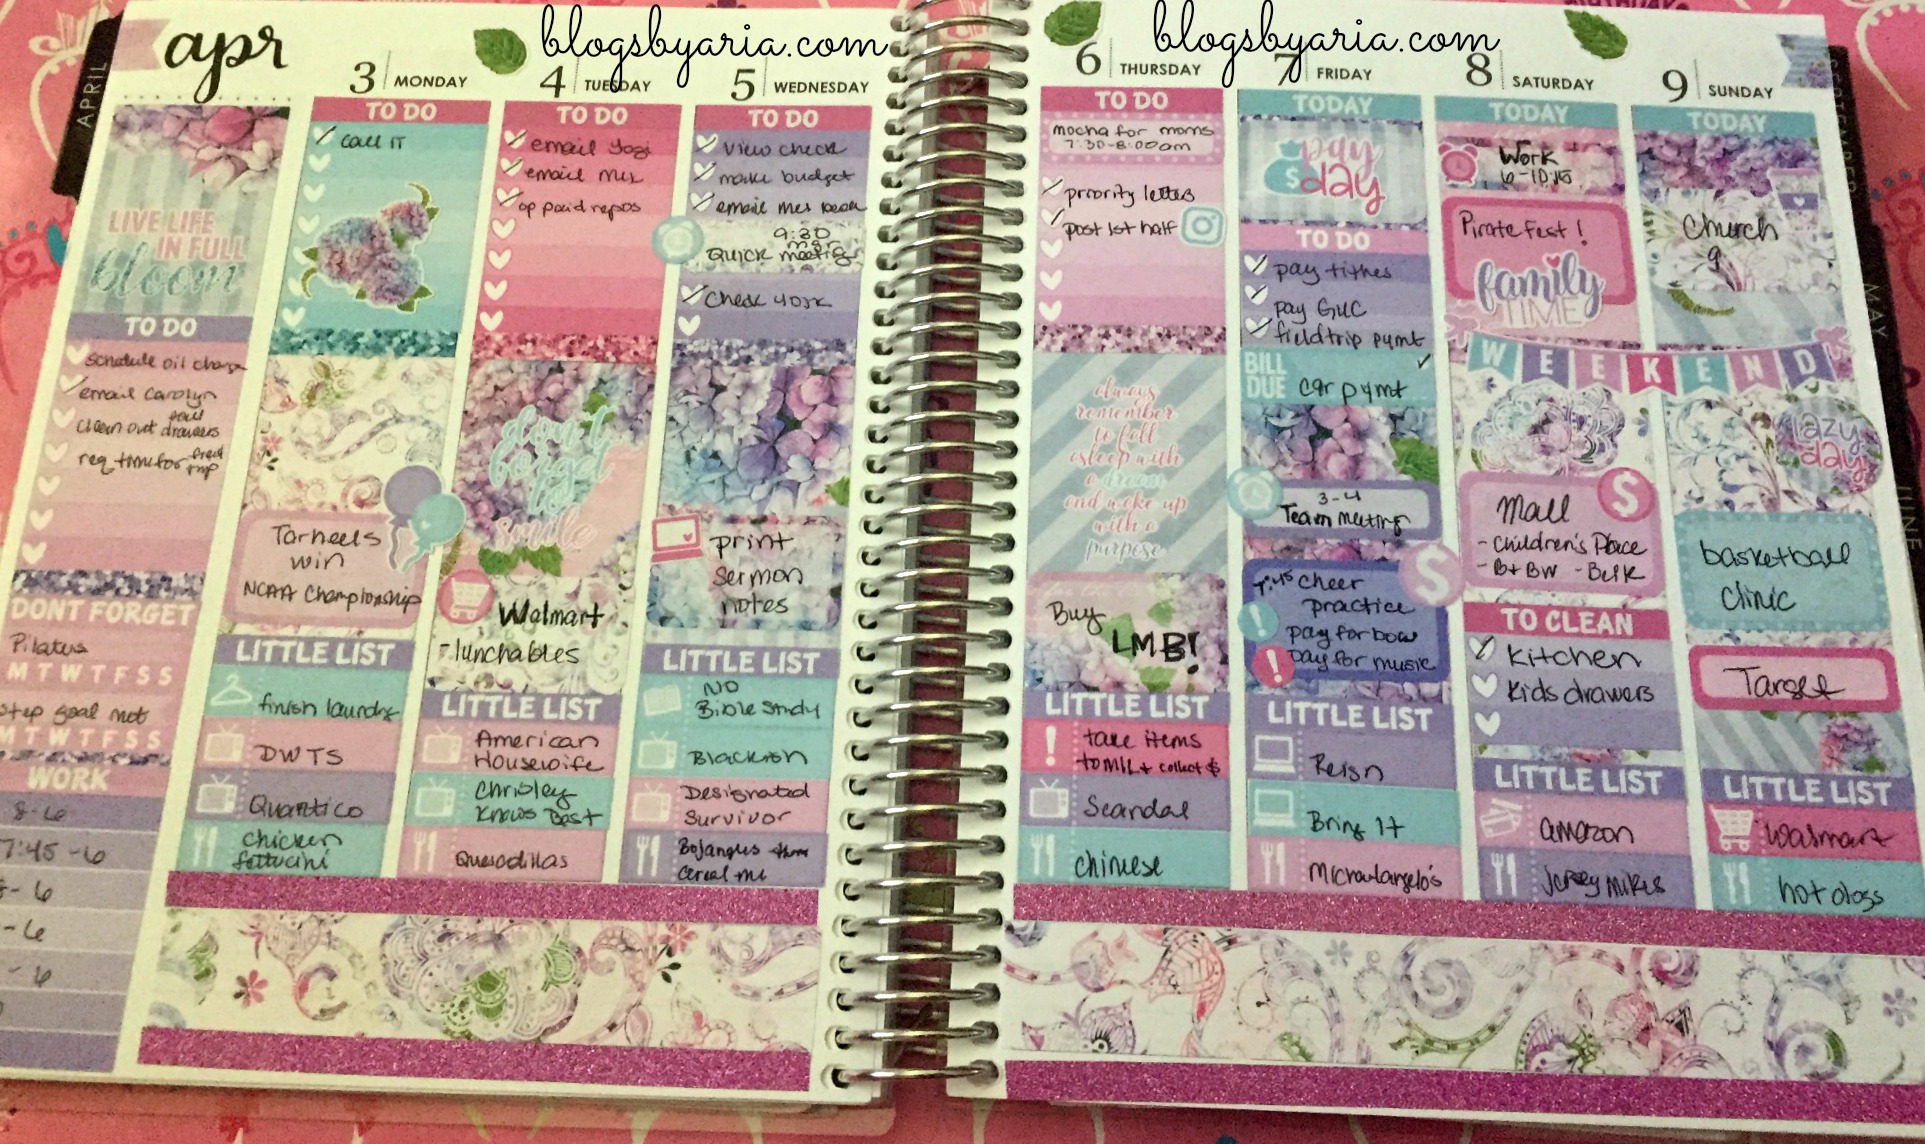 apr
blogsbyaria.com
blogsbyaria.com
APRIL
LIVE LIFE
IN FULL
bloom
TO DO
schedule oil change
email Carolyn
clean out
drawers
req time for field
trip
DONT FORGET
Pilates
M T W T F S S
step goal met
M T W T F S S
WORK
8-6
7:45-6
- 6
- 6
- 6
3 MONDAY
TO DO
call IT
Tarheels
win
NCAA Championship
LITTLE LIST
finish laundry
DWTS
Quantico
chicken
fettucini
4 TUESDAY
TO DO
email Yogi
email
op paid repos
don't
forget
to
smile
Walmart
- lunchables
LITTLE LIST
American
Housewife
Chrisley
Knows Best
Quesadillas
5 WEDNESDAY
TO DO
view check
make budget
email
9:30
mgr
Quick meeting
Check work
print
sermon
notes
LITTLE LIST
NO
Bible Study
Blackish
Designated
Survivor
Bojangles
cereal me
6 THURSDAY
TO DO
mocha for moms
7:30-8:00am
priority letters
post 1st half
always
remember
to fall
asleep with
a dream
and wake up
with a
purpose
Buy
LMB!
LITTLE LIST
! take items
to MIL + collect $
Scandal
chinese
7 FRIDAY
TODAY
pay
$ day
TO DO
pay tithes
pay GUC
fieldtrip pymt
BILL
DUE
car pymt
3-4
Team meeting
7:45 cheer
practice
! pay for bow
! pay for music
$
LITTLE LIST
Reign
Bring It
Michaelangelo's
8 SATURDAY
TODAY
Work
6-10:15
Pirate Fest!
family
TIME
WEEKEND
Mall
$
- Children's Place
- B+BW - Belk
TO CLEAN
kitchen
kids drawers
LITTLE LIST
amazon
Jersey Mikes
9 SUNDAY
TODAY
Church
9
lazy
day
basketball
clinic
Target
LITTLE LIST
Walmart
hot dogs
SEPTEMBER
MAY
JUNE